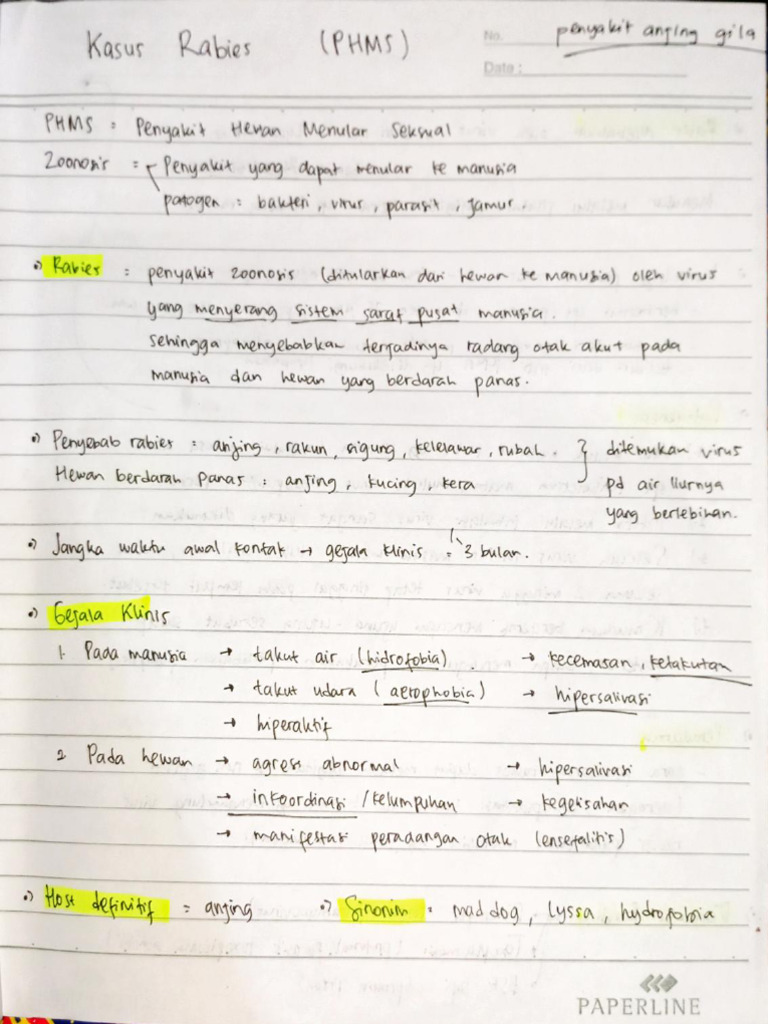 Kasus Rabies (PHMS)
No. penyakit anjing gila
Date :
PHMS = Penyakit Hewan Menular Seksual
Zoonosis = Penyakit yang dapat menular ke manusia
patogen = bakteri, virus, parasit, jamur
Rabies = penyakit zoonosis (ditularkan dari hewan ke manusia) oleh virus
yang menyerang sistem saraf pusat manusia.
Sehingga menyebabkan terjadinya radang otak akut pada
manusia dan hewan yang berdarah panas.
Penyebab rabies = anjing, rakun, sigung, kelelawar, rubah. } ditemukan virus
Hewan berdarah panas = anjing, kucing, kera pd air liurnya
yang berlebihan.
Jangka waktu awal kontak → gejala klinis = 3 bulan.
Gejala Klinis
1. Pada manusia → takut air (hidrofobia) → kecemasan, ketakutan
→ takut udara (aerophobia) → hipersalivasi
→ hiperaktif
2. Pada hewan → agresi abnormal → hipersalivasi
→ inkoordinasi / kelumpuhan → kegelisahan
→ manifestasi peradangan otak (ensefalitis)
Host definitif = anjing Sinonim = mad dog, lyssa, hydrofobia
PAPERLINE